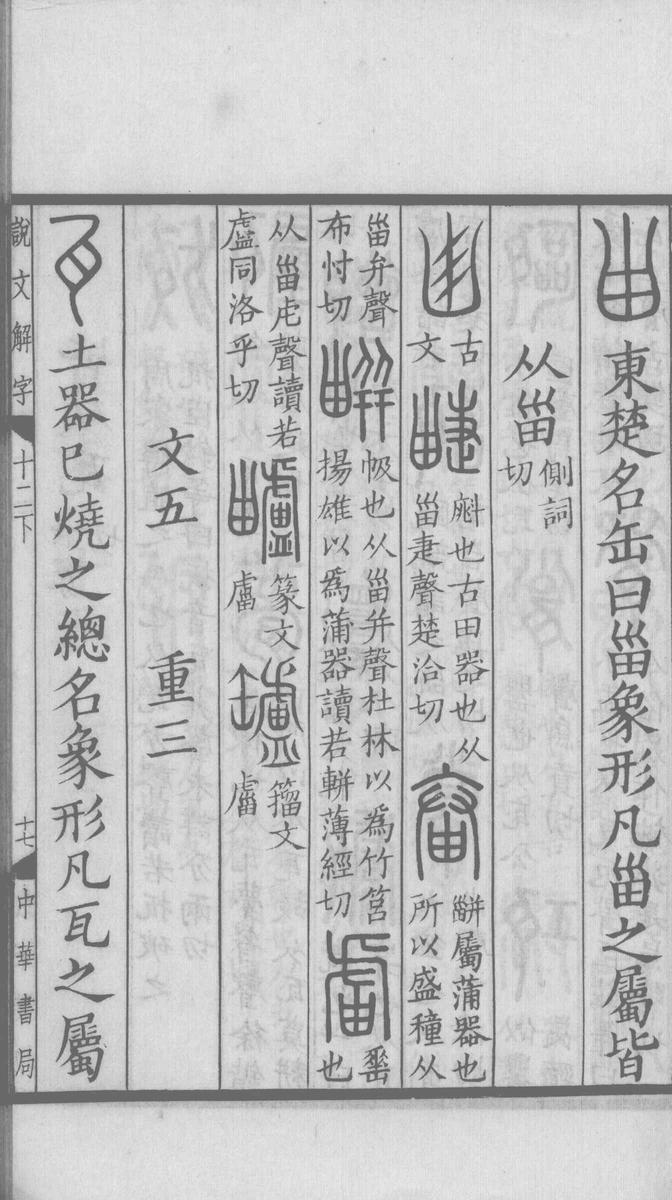 甾東楚名缶曰甾象形凡甾之屬皆
从甾
側詞
切
古
文
疀
也古田器也从
甾疌聲楚洽切
畚
㽀屬蒲器也
所以盛穜从
甾弁聲
布忖切
㽀
也从甾并聲杜林以爲竹筥
揚雄以爲蒲器讀若軿薄經切
𧆨
也
从甾虍聲讀若
盧同洛乎切
篆文
𧆨
籀文
𧆨
文五 重三
瓦土器已燒之總名象形凡瓦之屬
說文解字 十二下 十七 中華書局